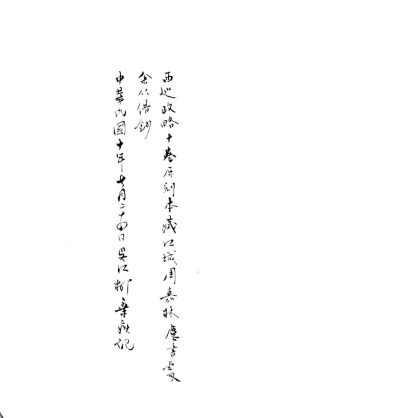 西巡政略十卷原刻本藏江城周嘉林麐書處
余從借鈔
中華民國十年七月二十四日吳江柳棄疾記